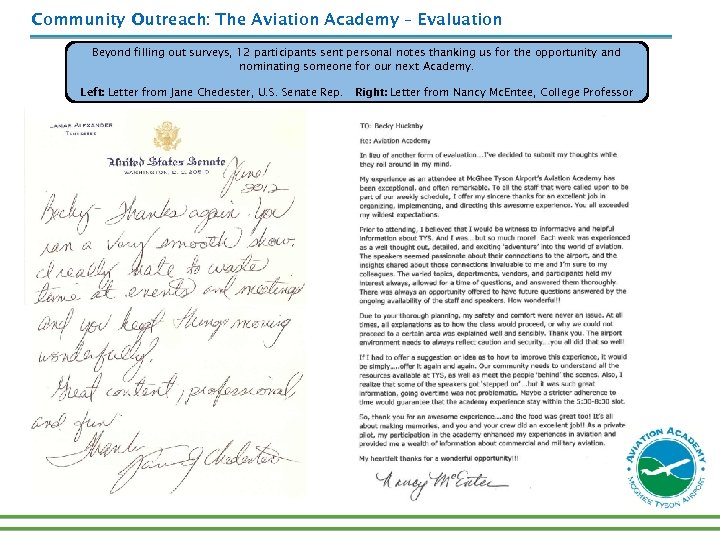 Community Outreach: The Aviation Academy – Evaluation
Beyond filling out surveys, 12 participants sent personal notes thanking us for the opportunity and
nominating someone for our next Academy.
Left: Letter from Jane Chedester, U.S. Senate Rep. Right: Letter from Nancy McEntee, College Professor
LAMAR ALEXANDER
TENNESSEE
United States Senate
WASHINGTON, D. C. 20510
June 1
2012
Becky -
Thanks again. You
ran a very smooth show.
I really hate to waste
time at events and meetings
and you kept things moving
wonderfully.
Great content, professional
and fun.
Thanks
Jane Chedester
TO: Becky Huckaby
Re: Aviation Academy
In lieu of another form of evaluation...I've decided to submit my thoughts while
they roll around in my mind.
My experience as an attendee at McGhee Tyson Airport's Aviation Academy has
been exceptional, and often remarkable. To all the staff that were called upon to be
part of our weekly schedule, I offer my sincere thanks for an excellent job in
organizing, implementing, and directing this awesome experience. You all exceeded
my wildest expectations.
Prior to attending, I believed that I would be witness to informative and helpful
information about TYS. And I was...but so much more! Each week was experienced
as a well thought out, detailed, and exciting 'adventure' into the world of aviation.
The speakers seemed passionate about their connections to the airport, and the
insights shared about those connections invaluable to me and I'm sure to my
colleagues. The varied topics, departments, vendors, and participants held my
interest always, allowed for a time of questions, and answered them thoroughly.
There was always an opportunity offered to have future questions answered by the
ongoing availability of the staff and speakers. How wonderful!!
Due to your thorough planning, my safety and comfort were never an issue. At all
times, all explanations as to how the class would proceed, or why we could not
proceed to a certain area was explained well and sensibly. Thank you. The airport
environment needs to always reflect caution and security...you all did that so well!
If I had to offer a suggestion or idea as to how to improve this experience, it would
be simply....offer it again and again. Our community needs to understand all the
resources available at TYS, as well as meet the people 'behind' the scenes. Also, I
realize that some of the speakers got 'stepped on'...but it was such great
information, going overtime was not problematic. Maybe a stricter adherence to
time would guarantee that the academy experience stay within the 5:30-8:30 slot.
So, thank you for an awesome experience...and the food was great too! It's all
about making memories, and you and your crew did an excellent job!! As a private
pilot, my participation in the academy enhanced my experiences in aviation and
provided me a wealth of information about commercial and military aviation.
My heartfelt thanks for a wonderful opportunity!!!
Nancy McEntee
AVIATION ACADEMY
MCGHEE TYSON AIRPORT